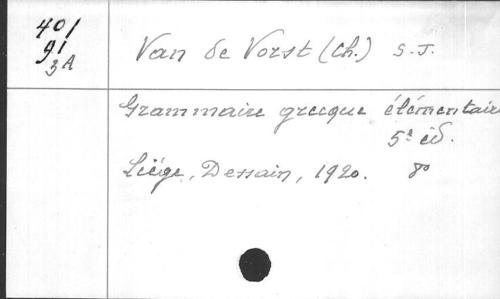 401
91
3A
Van de Vorst (Ch.) S.J.
Grammaire grecque élémentaire
5e éd.
Liége, Dessain, 1920. 8o